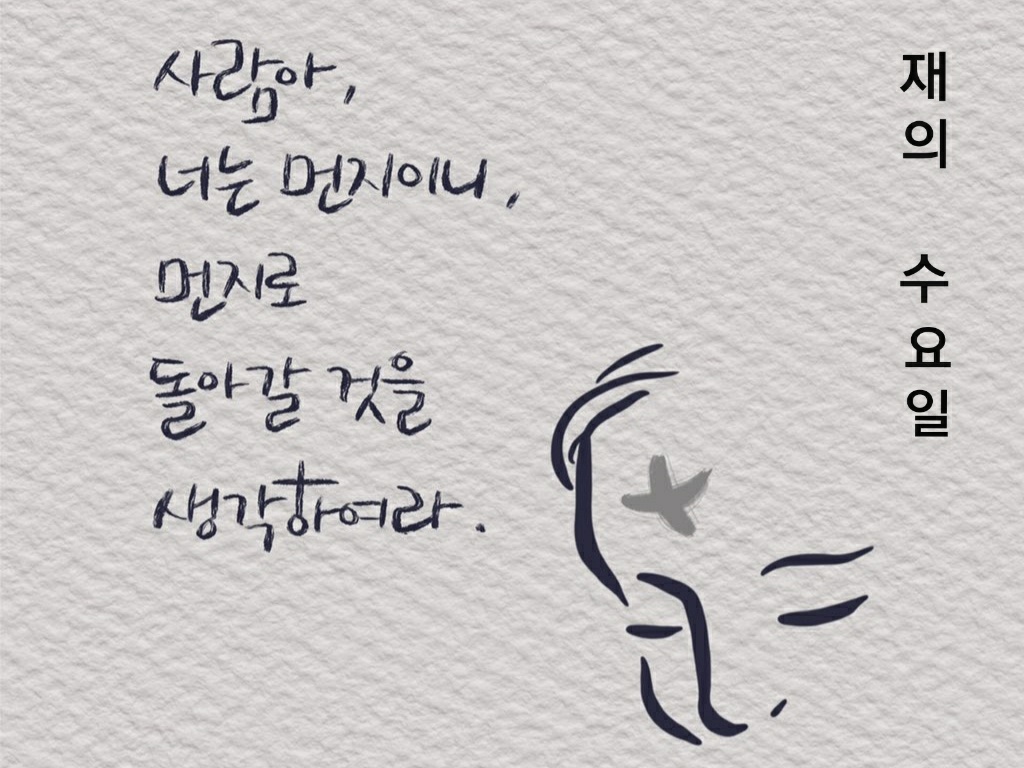 사람아,
너는 먼지이니,
먼지로
돌아갈 것을
생각하여라.
재의 수요일